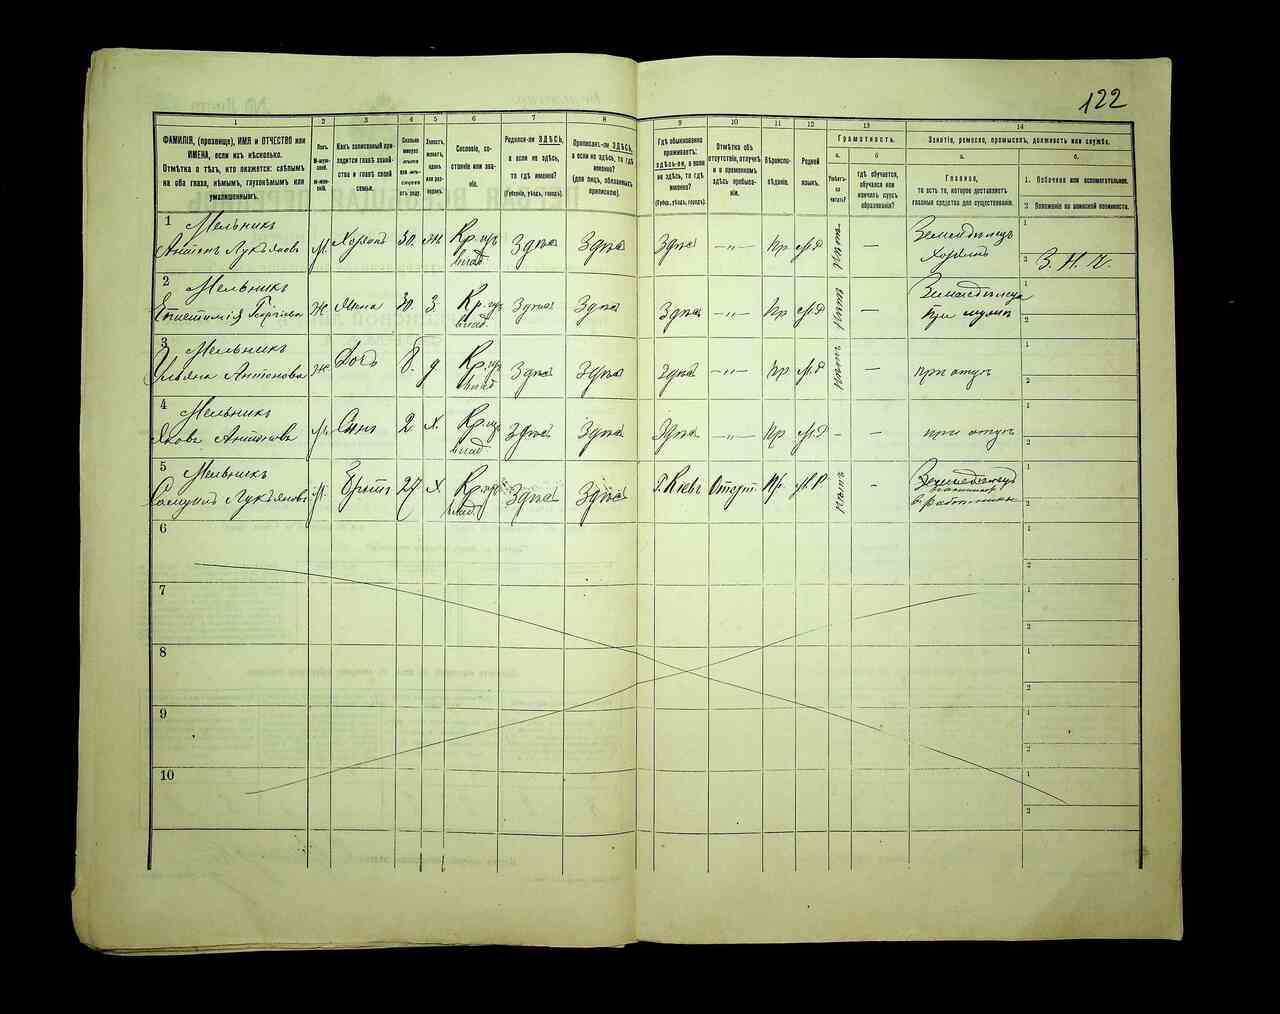 122
1 2 3 4 5 6 7 8 9 10 11 12 13 14
ФАМИЛІЯ, (прозвище), ИМЯ и ОТЧЕСТВО или
ИМЕНА, если ихъ нѣсколько.
Отмѣтка о тѣхъ, кто окажется: слѣпымъ
на оба глаза, нѣмымъ, глухонѣмымъ или
умалишеннымъ.
Полъ.
М-мужской.
Ж-женскій.
Какъ записанный приходится
главѣ хозяйства и главѣ своей
семьи.
Сословіе, состояніе или званіе.
Родился-ли ЗДѢСЬ,
а если не здѣсь,
то гдѣ именно?
(Губернія, уѣздъ, городъ).
Приписанъ-ли ЗДѢСЬ,
а если не здѣсь, то гдѣ
именно?
(для лицъ, обязанныхъ
припискою).
Гдѣ обыкновенно
проживаетъ:
здѣсь-ли, а если
не здѣсь, то гдѣ
именно?
(Губер., уѣздъ, городъ).
Отмѣтка объ
отсутствіи, отлучкѣ
и о временномъ
здѣсь пребываніи.
Вѣроисповѣданіе.
Родной
языкъ.
Грамотность.
а.
Умѣетъ-ли
читать?
б
гдѣ обучается,
обучался или
кончилъ курсъ
образованія?
Занятіе, ремесло, промыселъ, должность или служба.
а.
Главное,
то есть то, которое доставляетъ
главныя средства для существованія.
б.
1. Побочное или вспомогательное.
2 Положеніе по воинской повинности.
1 Мельникъ
Антонъ Лукьяновъ М. Хозяинъ 30. Ж Кр. из влад. Здѣсь Здѣсь Здѣсь —„— Пр М.Р Нѣтъ — Земледѣлецъ Хозяинъ 1 2 З. Н. Ч.
2 Мельникъ
Георгіева Ж Жена 30. З. Кр. из влад. Здѣсь Здѣсь Здѣсь —„— Пр М.Р Нѣтъ — Земледѣлица При мужѣ 1 2
3 Мельникъ
Ульяна Антонова Ж Дочь 8. д Кр. из влад Здѣсь Здѣсь Здѣсь —„— Пр М.Р Нѣтъ — при отцѣ 1 2
4 Мельникъ
Яковъ Антоновъ М. Сынъ 2 Х. Кр. из влад. Здѣсь Здѣсь Здѣсь —„— Пр М.Р - — при отцѣ 1 2
5 Мельникъ
Лукьяновъ М. Братъ 27 Х. Кр. из влад. Здѣсь Здѣсь Г. Кіевъ Пр. М.Р. Нѣтъ - Земледѣлецъ 1 2
6 1 2
7 1 2
8 1 2
9 1 2
10 1 2